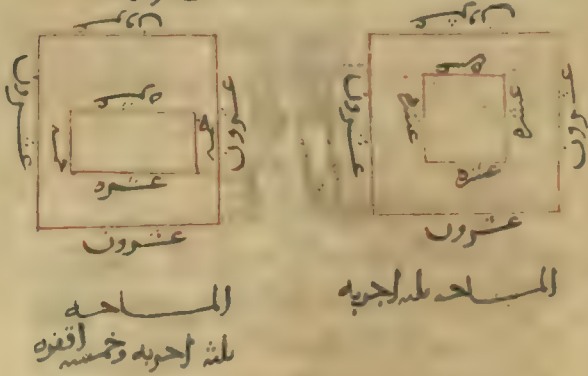 عشرون
عشرون
عشرون
عشره
عشره
عشره
عشره
عشرون
المساحه ثلثه اجربه
عشرون
عشرون
عشرون
عشره
عشره
عشرون
المساحه
ثلثه اجربه وخمسه اقفزه